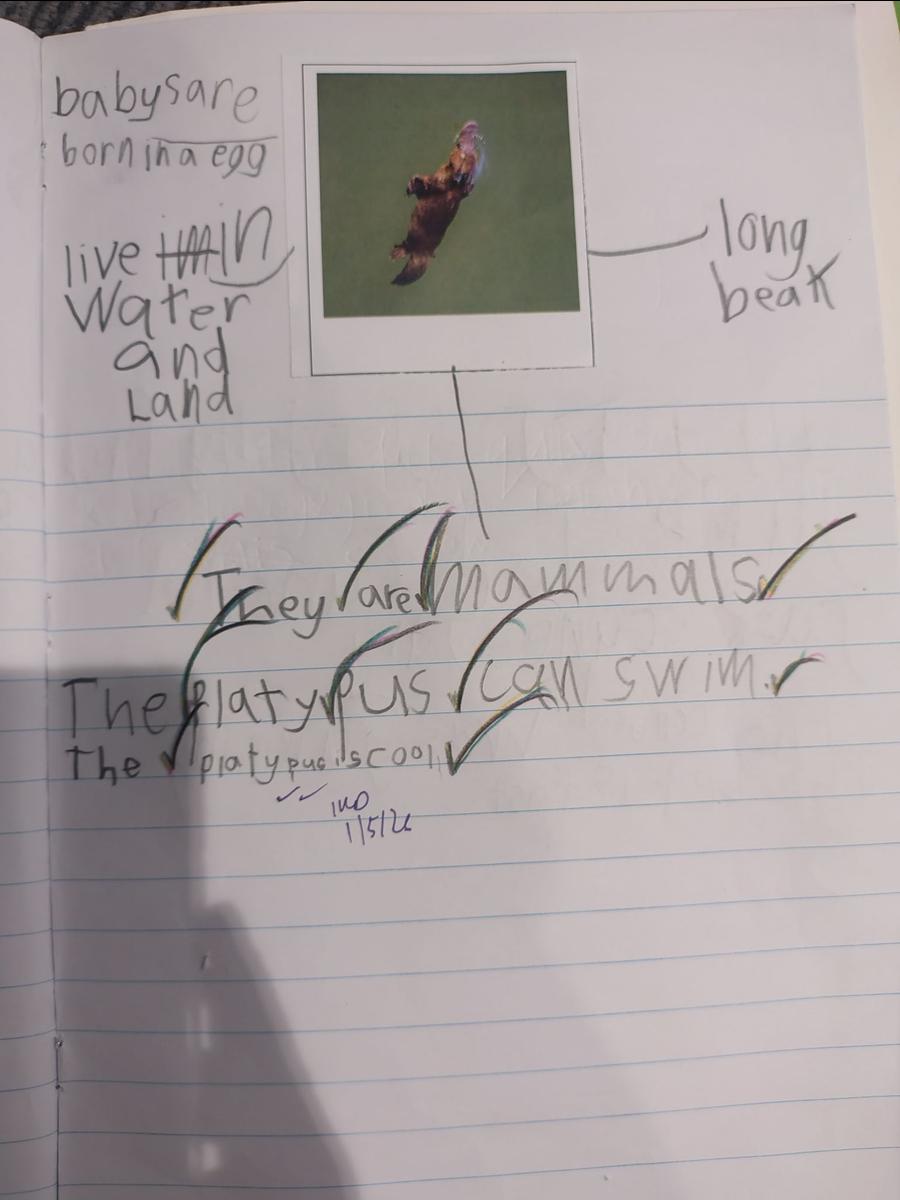 babys are
born in a egg
live in
water
and
Land
long
beak
They are mammals
The platypus can swim.
The platypus is cool
1/5/26